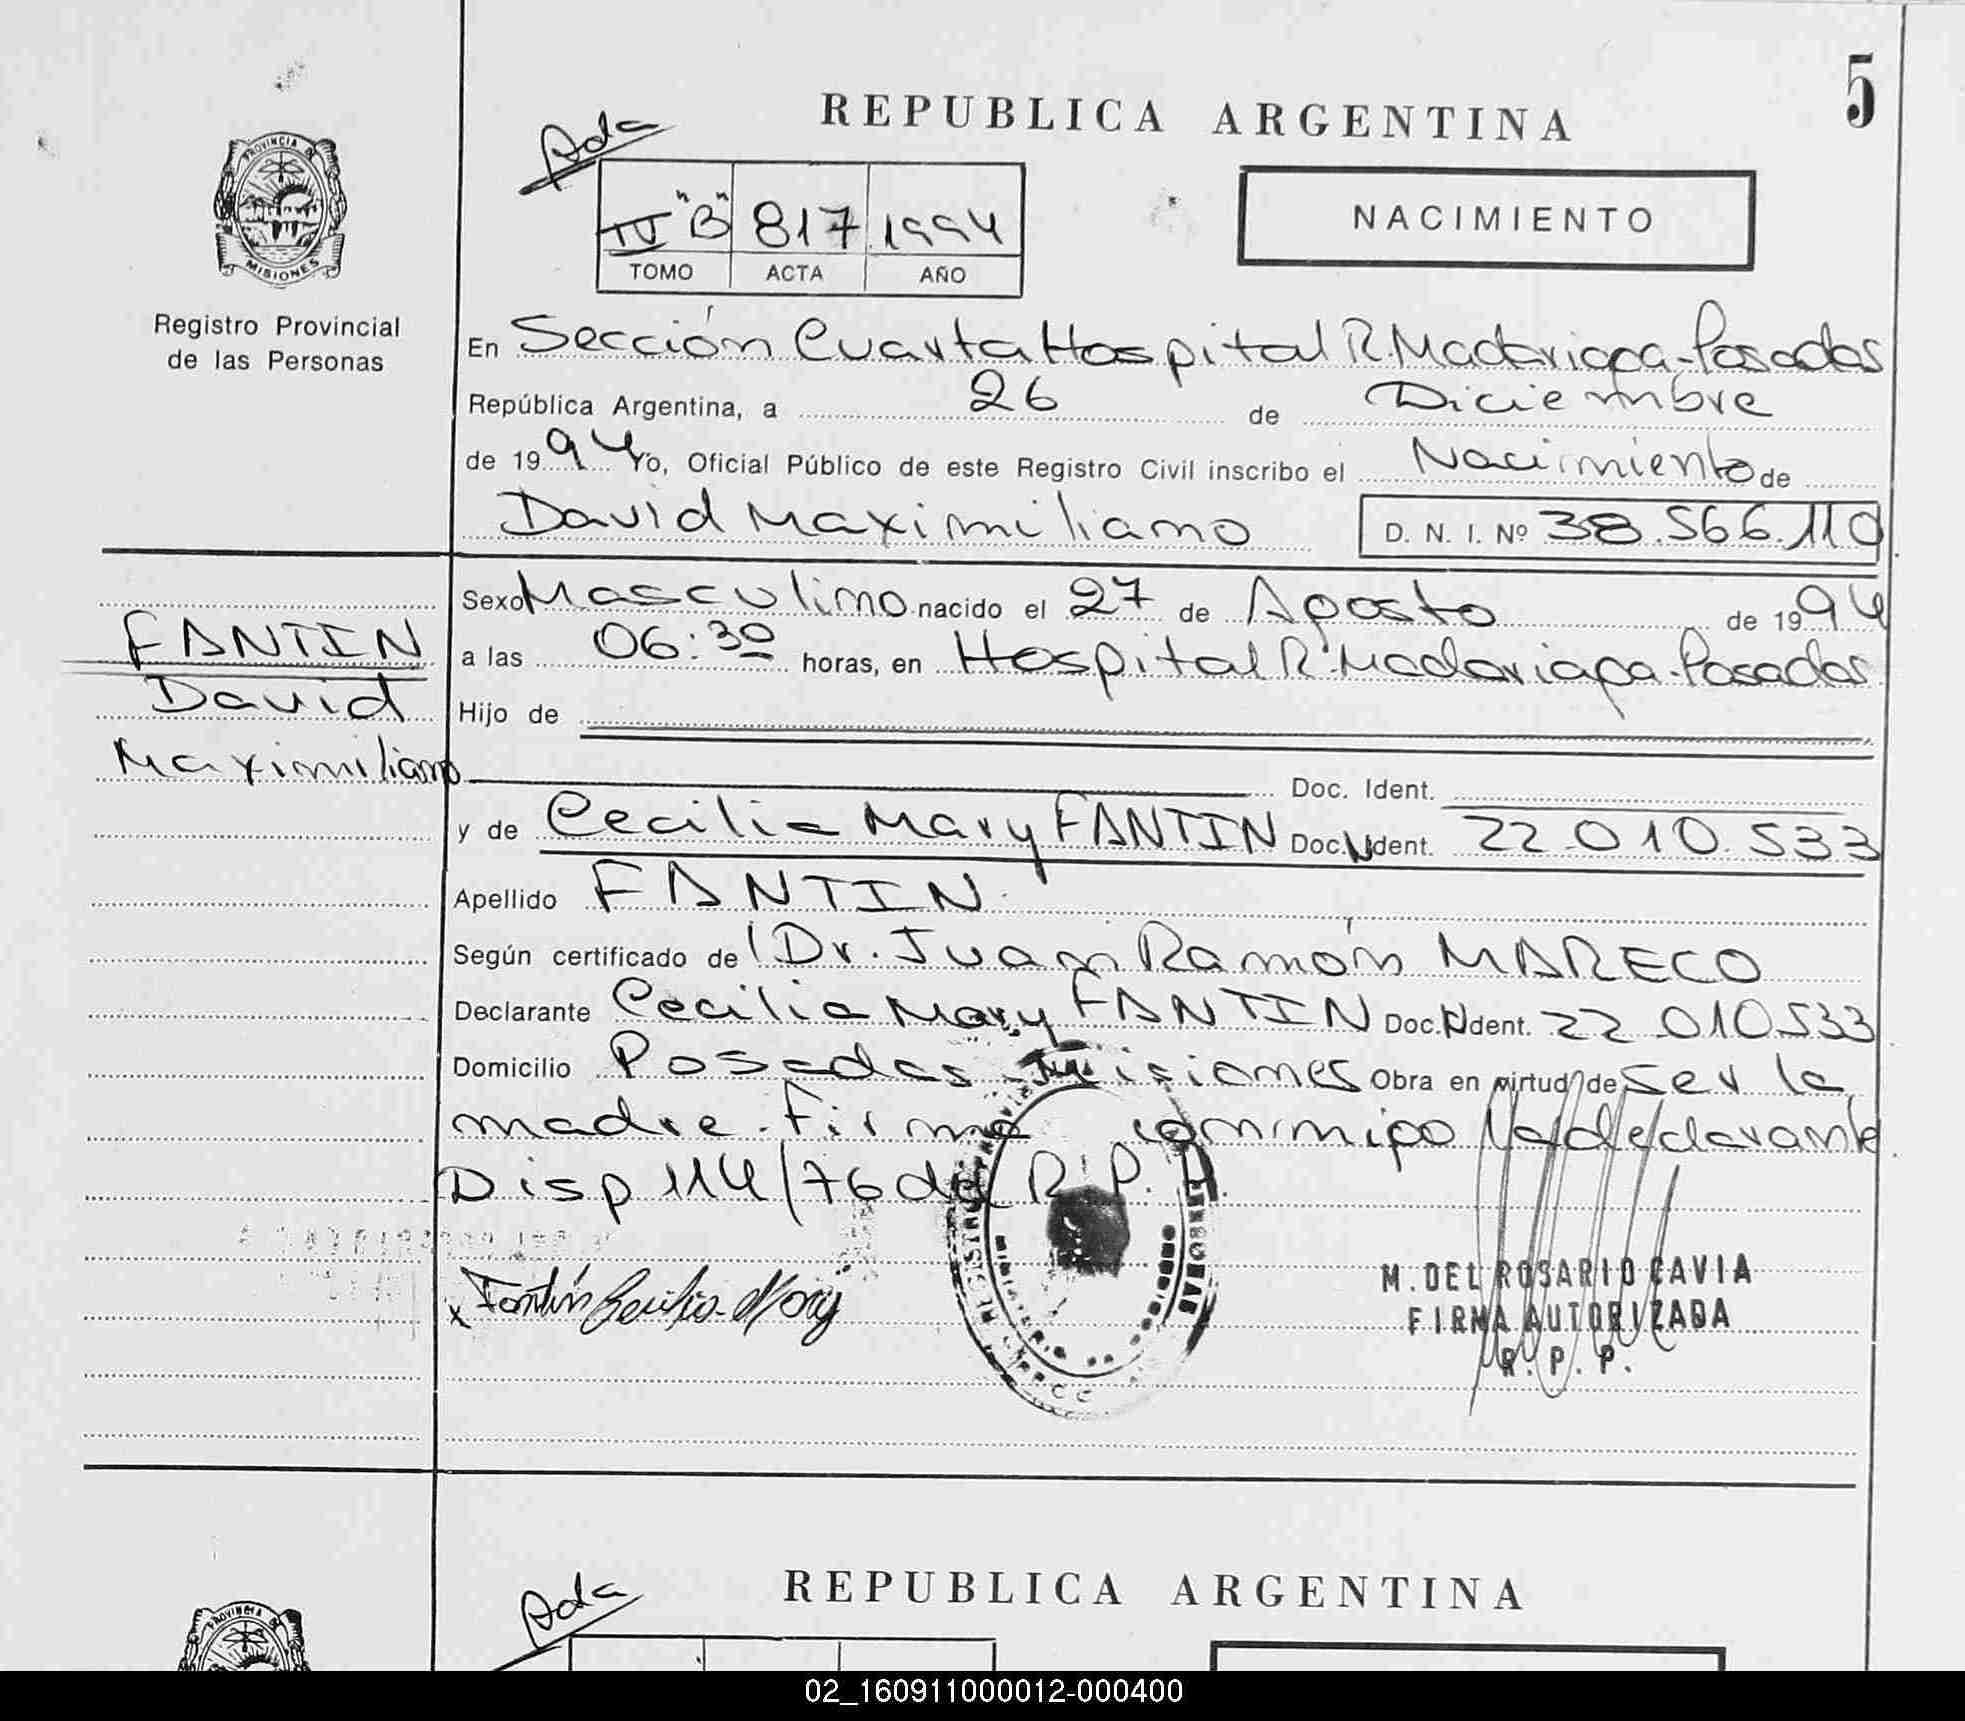 5
REPUBLICA ARGENTINA
Ada
PROVINCIA DE
MISIONES
"B" 817 1994
TOMO ACTA AÑO
NACIMIENTO
Registro Provincial
de las Personas
En Sección Cuarta Hospital R. Madariaga - Posadas
República Argentina, a 26 de Diciembre
de 1994 Yo, Oficial Público de este Registro Civil inscribo el Nacimiento de
David Maximiliano D. N. I. Nº 38.566.110
FANTIN
David
Maximiliano
Sexo Masculino nacido el 27 de Agosto de 1994
a las 06:30 horas, en Hospital R. Madariaga - Posadas
Hijo de
Doc. Ident.
y de Cecilia Mary FANTIN Doc. Ident. 22.010.533
Apellido FANTIN
Según certificado de Dr. Juan Ramón MARECO
Declarante Cecilia Mary FANTIN Doc. Ident. 22.010.533
Domicilio Posadas - Misiones Obra en virtud de ser la
madre. Firma conmigo la declarante
Disp 114/76 del R. P. P.
x Fantín Cecilia Mary
M. DEL ROSARIO CAVIA
FIRMA AUTORIZADA
R. P. P.
REPUBLICA ARGENTINA
Ada
PROVINCIA DE
02_160911000012-000400